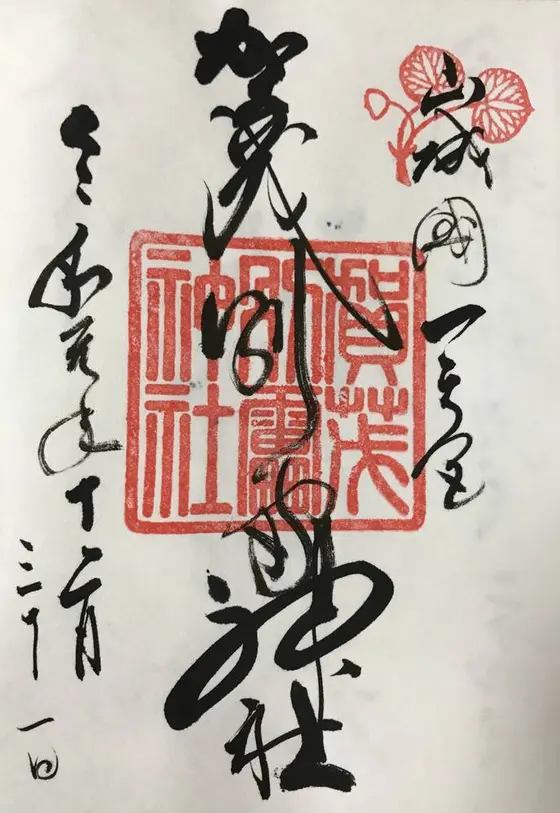 山城國一之宮
賀茂別雷神社
賀茂
別雷
神社
令和元年十二月
三十一日